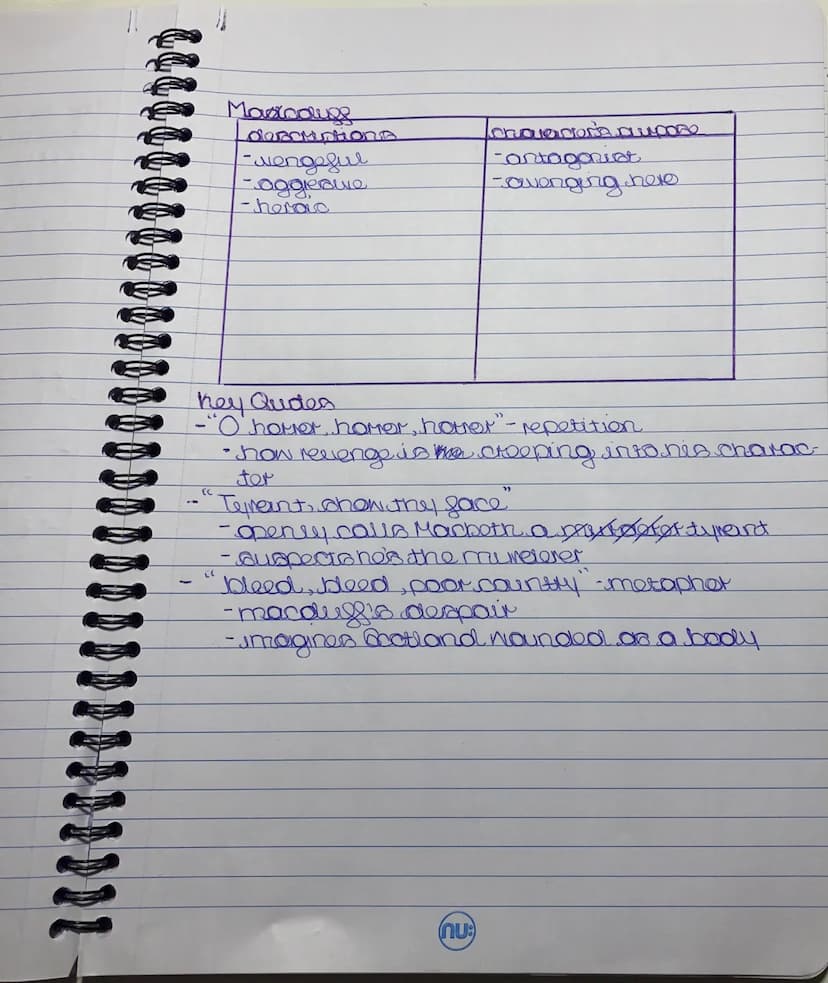 Macduff
descriptions characters purpose
-vengeful -antagonist
-aggresive -avenging hero
-heroic
Key Quotes
-"O horror, horror, horror" - repetition
-how revenge is creeping into his charac-
ter
-"Tyrant, show thy face"
-openly calls Macbeth a tyrant
-suspects he's the murderer
-"bleed, bleed, poor country" -metaphor
-macduff's despair
-imagines Scotland wounded as a body
nu: